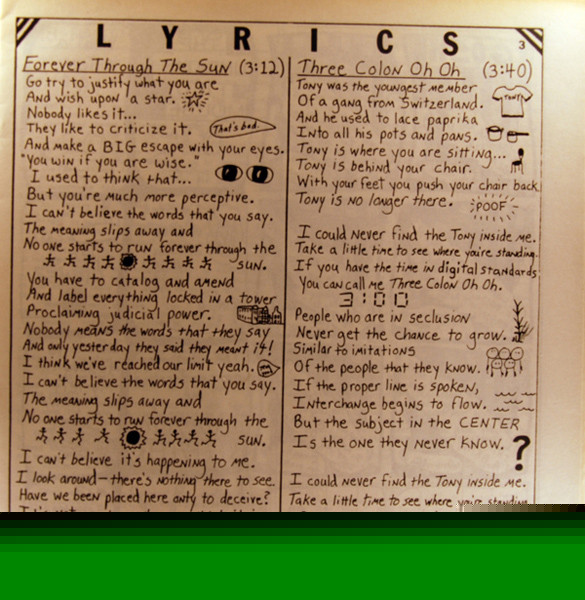 LYRICS
3
Forever Through The Sun (3:12)
Go try to justify what you are
And wish upon a star.
Nobody likes it...
They like to criticize it.
That's bad.
And make a BIG escape with your eyes.
"You win if you are wise."
I used to think that...
But you're much more perceptive.
I can't believe the words that you say.
The meaning slips away and
No one starts to run forever through the
sun.
You have to catalog and amend
And label everything locked in a tower
Proclaiming judicial power.
Nobody means the words that they say
And only yesterday they said they meant it!
I think we've reached our limit yeah.
I can't believe the words that you say.
The meaning slips away and
No one starts to run forever through the
sun.
I can't believe it's happening to me.
I look around—there's nothing there to see.
Have we been placed here only to deceive?
Three Colon Oh Oh (3:40)
Tony was the youngest member
Of a gang from Switzerland.
TONY
And he used to lace paprika
Into all his pots and pans.
Tony is where you are sitting...
Tony is behind your chair.
With your feet you push your chair back
Tony is no longer there.
POOF
I could never find the Tony inside me.
Take a little time to see where you're standing.
If you have the time in digital standards
You can call me Three Colon Oh Oh.
3:00
People who are in seclusion
Never get the chance to grow.
Similar to imitations
Of the people that they know.
If the proper line is spoken,
Interchange begins to flow.
But the subject in the CENTER
Is the one they never know.
?
I could never find the Tony inside me.
Take a little time to see where you're standing